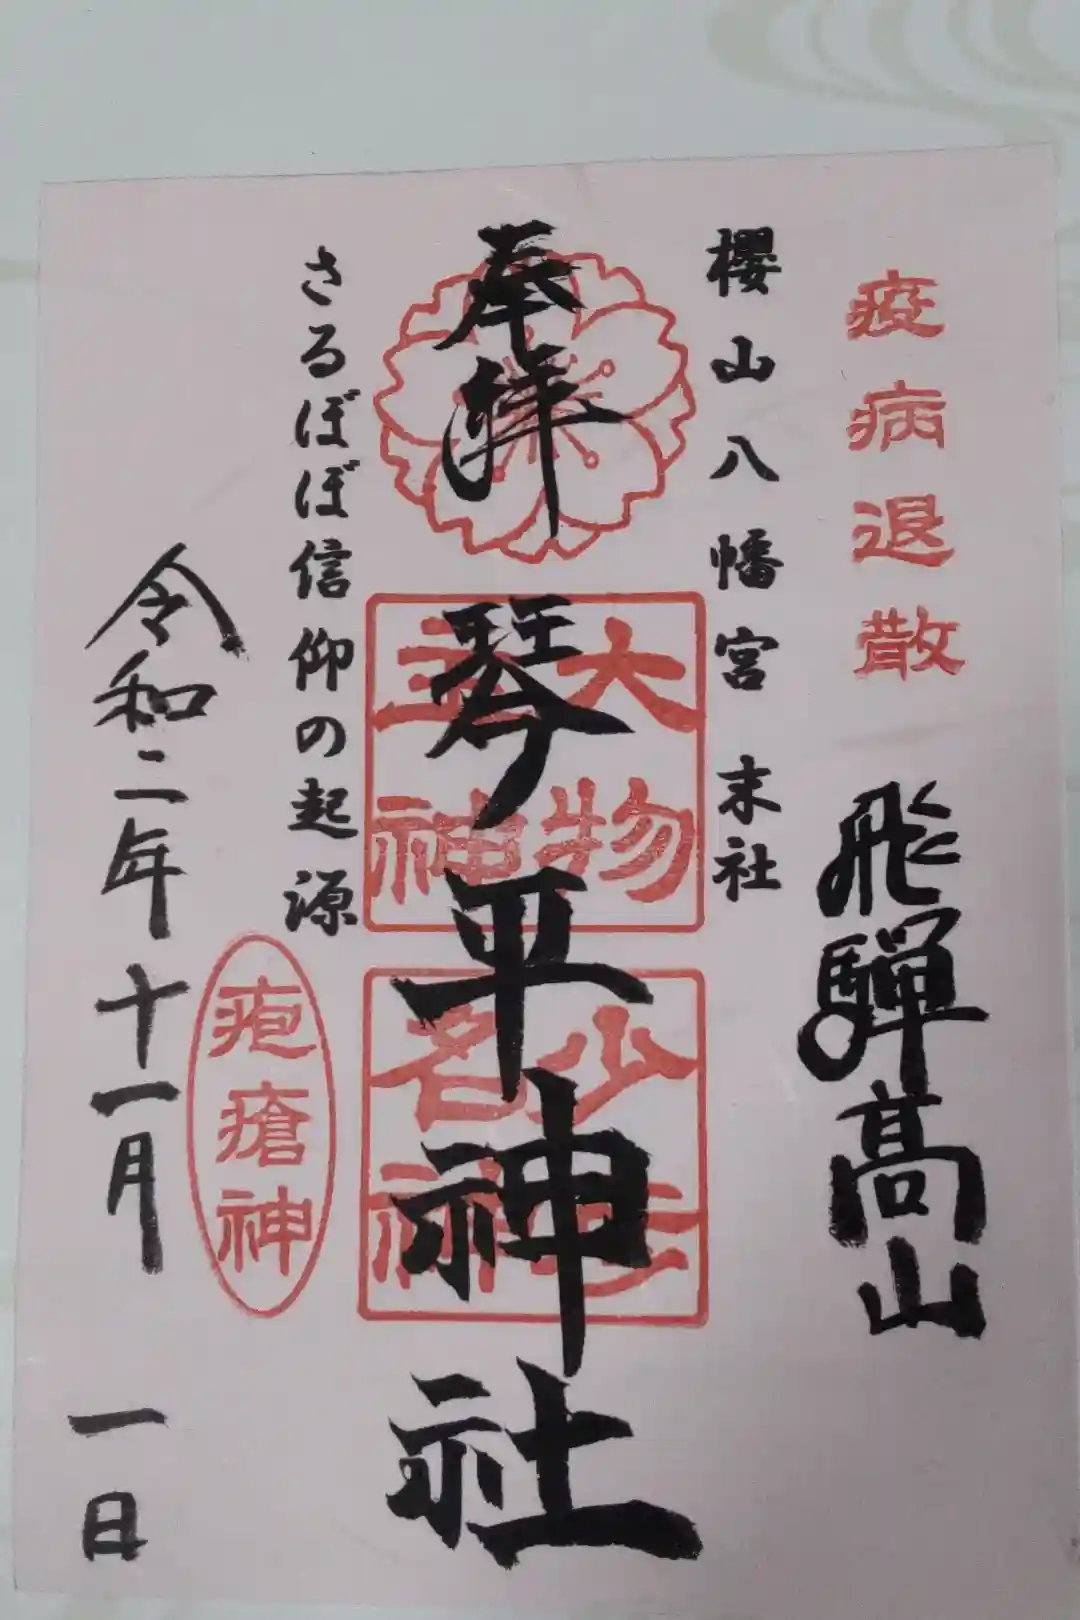 疫病退散
飛騨高山
櫻山八幡宮 末社
奉拝
琴平神社
大物主神
少名
さるぼぼ信仰の起源
疱瘡神
令和二年十一月一日